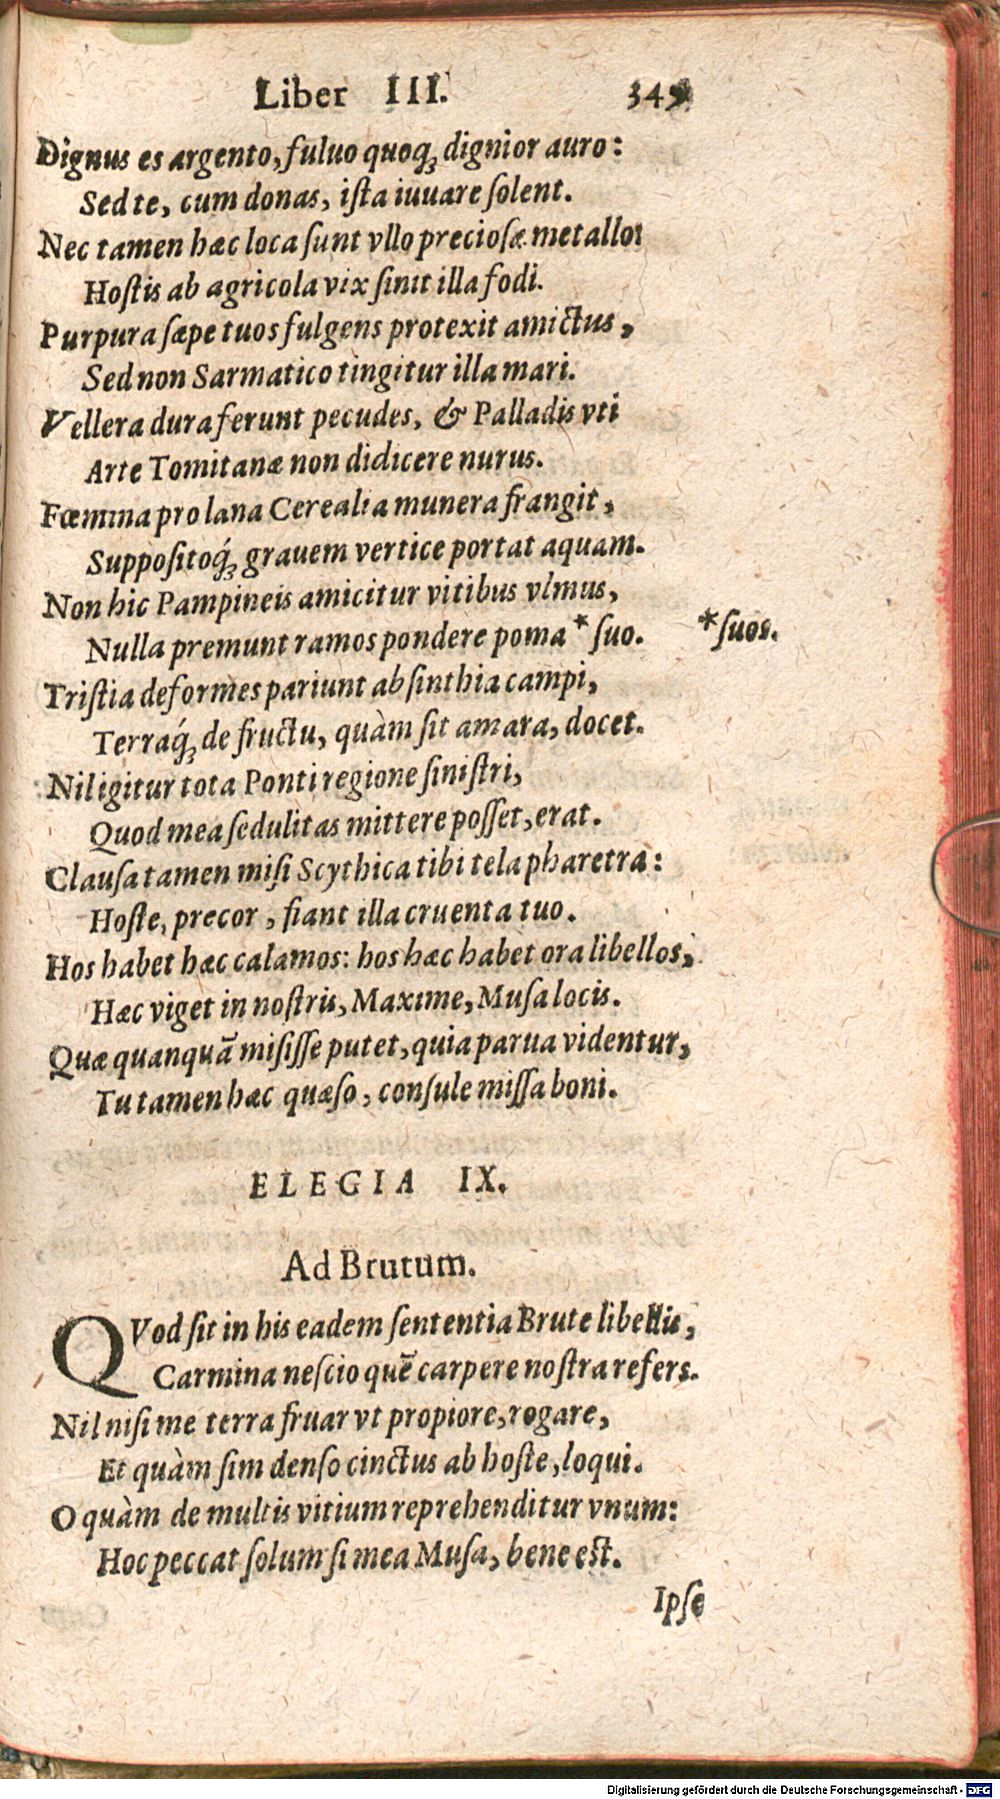 Liber III. 345
Dignus es argento, fuluo quoq́; dignior auro:
Sed te, cum donas, iſta iuuare ſolent.
Nec tamen hæc loca ſunt vllo precioſæ metallo:
Hoſtis ab agricola vix ſinit illa fodi.
Purpura ſæpe tuos fulgens protexit amictus,
Sed non Sarmatico tingitur illa mari.
Vellera dura ferunt pecudes, & Palladis vti
Arte Tomitanæ non didicere nurus.
Fœmina pro lana Cerealia munera frangit,
Suppoſitoq́; grauem vertice portat aquam.
Non hic Pampineis amicitur vitibus vlmus,
Nulla premunt ramos pondere poma * ſuo. *ſuos.
Triſtia deformes pariunt abſinthia campi,
Terraq́; de fructu, quàm ſit amara, docet.
Nil igitur tota Ponti regione ſiniſtri,
Quod mea ſedulitas mittere poſſet, erat.
Clauſa tamen miſi Scythica tibi tela pharetra:
Hoſte, precor, fiant illa cruenta tuo.
Hos habet hæc calamos: hos hæc habet ora libellos,
Hæc viget in noſtris, Maxime, Muſa locis.
Quæ quanquā miſiſſe putet, quia parua videntur,
Tu tamen hæc quæſo, conſule miſſa boni.
ELEGIA IX.
Ad Brutum.
QVod ſit in his eadem ſententia Brute libellis,
Carmina neſcio quē carpere noſtra refers.
Nil niſi me terra fruar vt propiore, rogare,
Et quàm ſim denſo cinctus ab hoſte, loqui.
O quàm de multis vitium reprehenditur vnum:
Hoc peccat ſolum ſi mea Muſa, bene eſt.
Ipſe
Digitalisierung gefördert durch die Deutsche Forschungsgemeinschaft - DFG